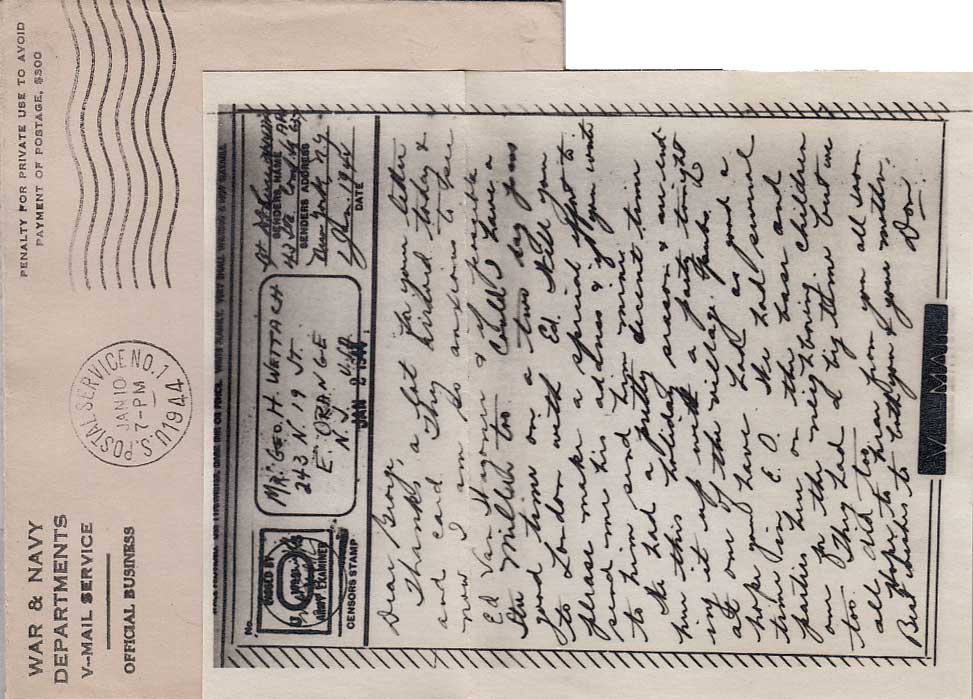 PENALTY FOR PRIVATE USE TO AVOID
PAYMENT OF POSTAGE, $300
U.S. POSTAL SERVICE NO. 1
JAN 10
7-PM
1944
WAR & NAVY
DEPARTMENTS
V-MAIL SERVICE
OFFICIAL BUSINESS
No.
PASSED BY
ARMY EXAMINER
CENSORS STAMP
MR. GEO. H. WETTACH
243 N 19 ST.
E. ORANGE
N. J. U.S.A.
JAN 2 1944
SENDERS NAME
SENDERS ADDRESS
New York N.Y.
1 Jan. 1944
DATE
Dear George,
Thanks a lot for your letter
and card. They arrived today &
now I am so anxious to see
Ed Van Wagoner & if possible
Millich too. Could I have a
good time on a two day pass
to London with Ed. Will you
please make a special effort to
send me his address & if you wait
to him send him mine.
We had a pretty decent time
here this holiday season & are end
ing it up with a party tonight
at one of the village Pubs.
I hope you have had as good a
time in E.O. We had several
parties here on the base and
one for the neighboring children
too. They had a big time but we
all did too.
Hope to hear from you all soon.
Best wishes to both you & your mother.
Don
V-MAIL